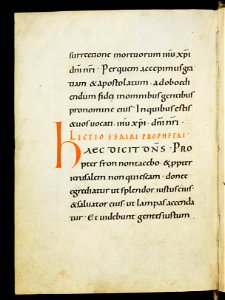 surrectione mortuorum ihu xpi
dni nri · Per quem accepimus gra
tiam & apostolatum · ad oboedi
endum fidei in omnibus gentibus
pro nomine eius · In quibus estis
& uos uocati · ihu xpi · dni nri ·
LECTIO ESAIAE PROPHETAE ·
HAEC DICIT DNS · PRO
pter sion non tacebo · & ppter
ierusalem non quiescam · donec
egrediatur ut splendor iustus eius
& saluator eius · ut lampas accenda
tur · Et uidebunt gentes iustum